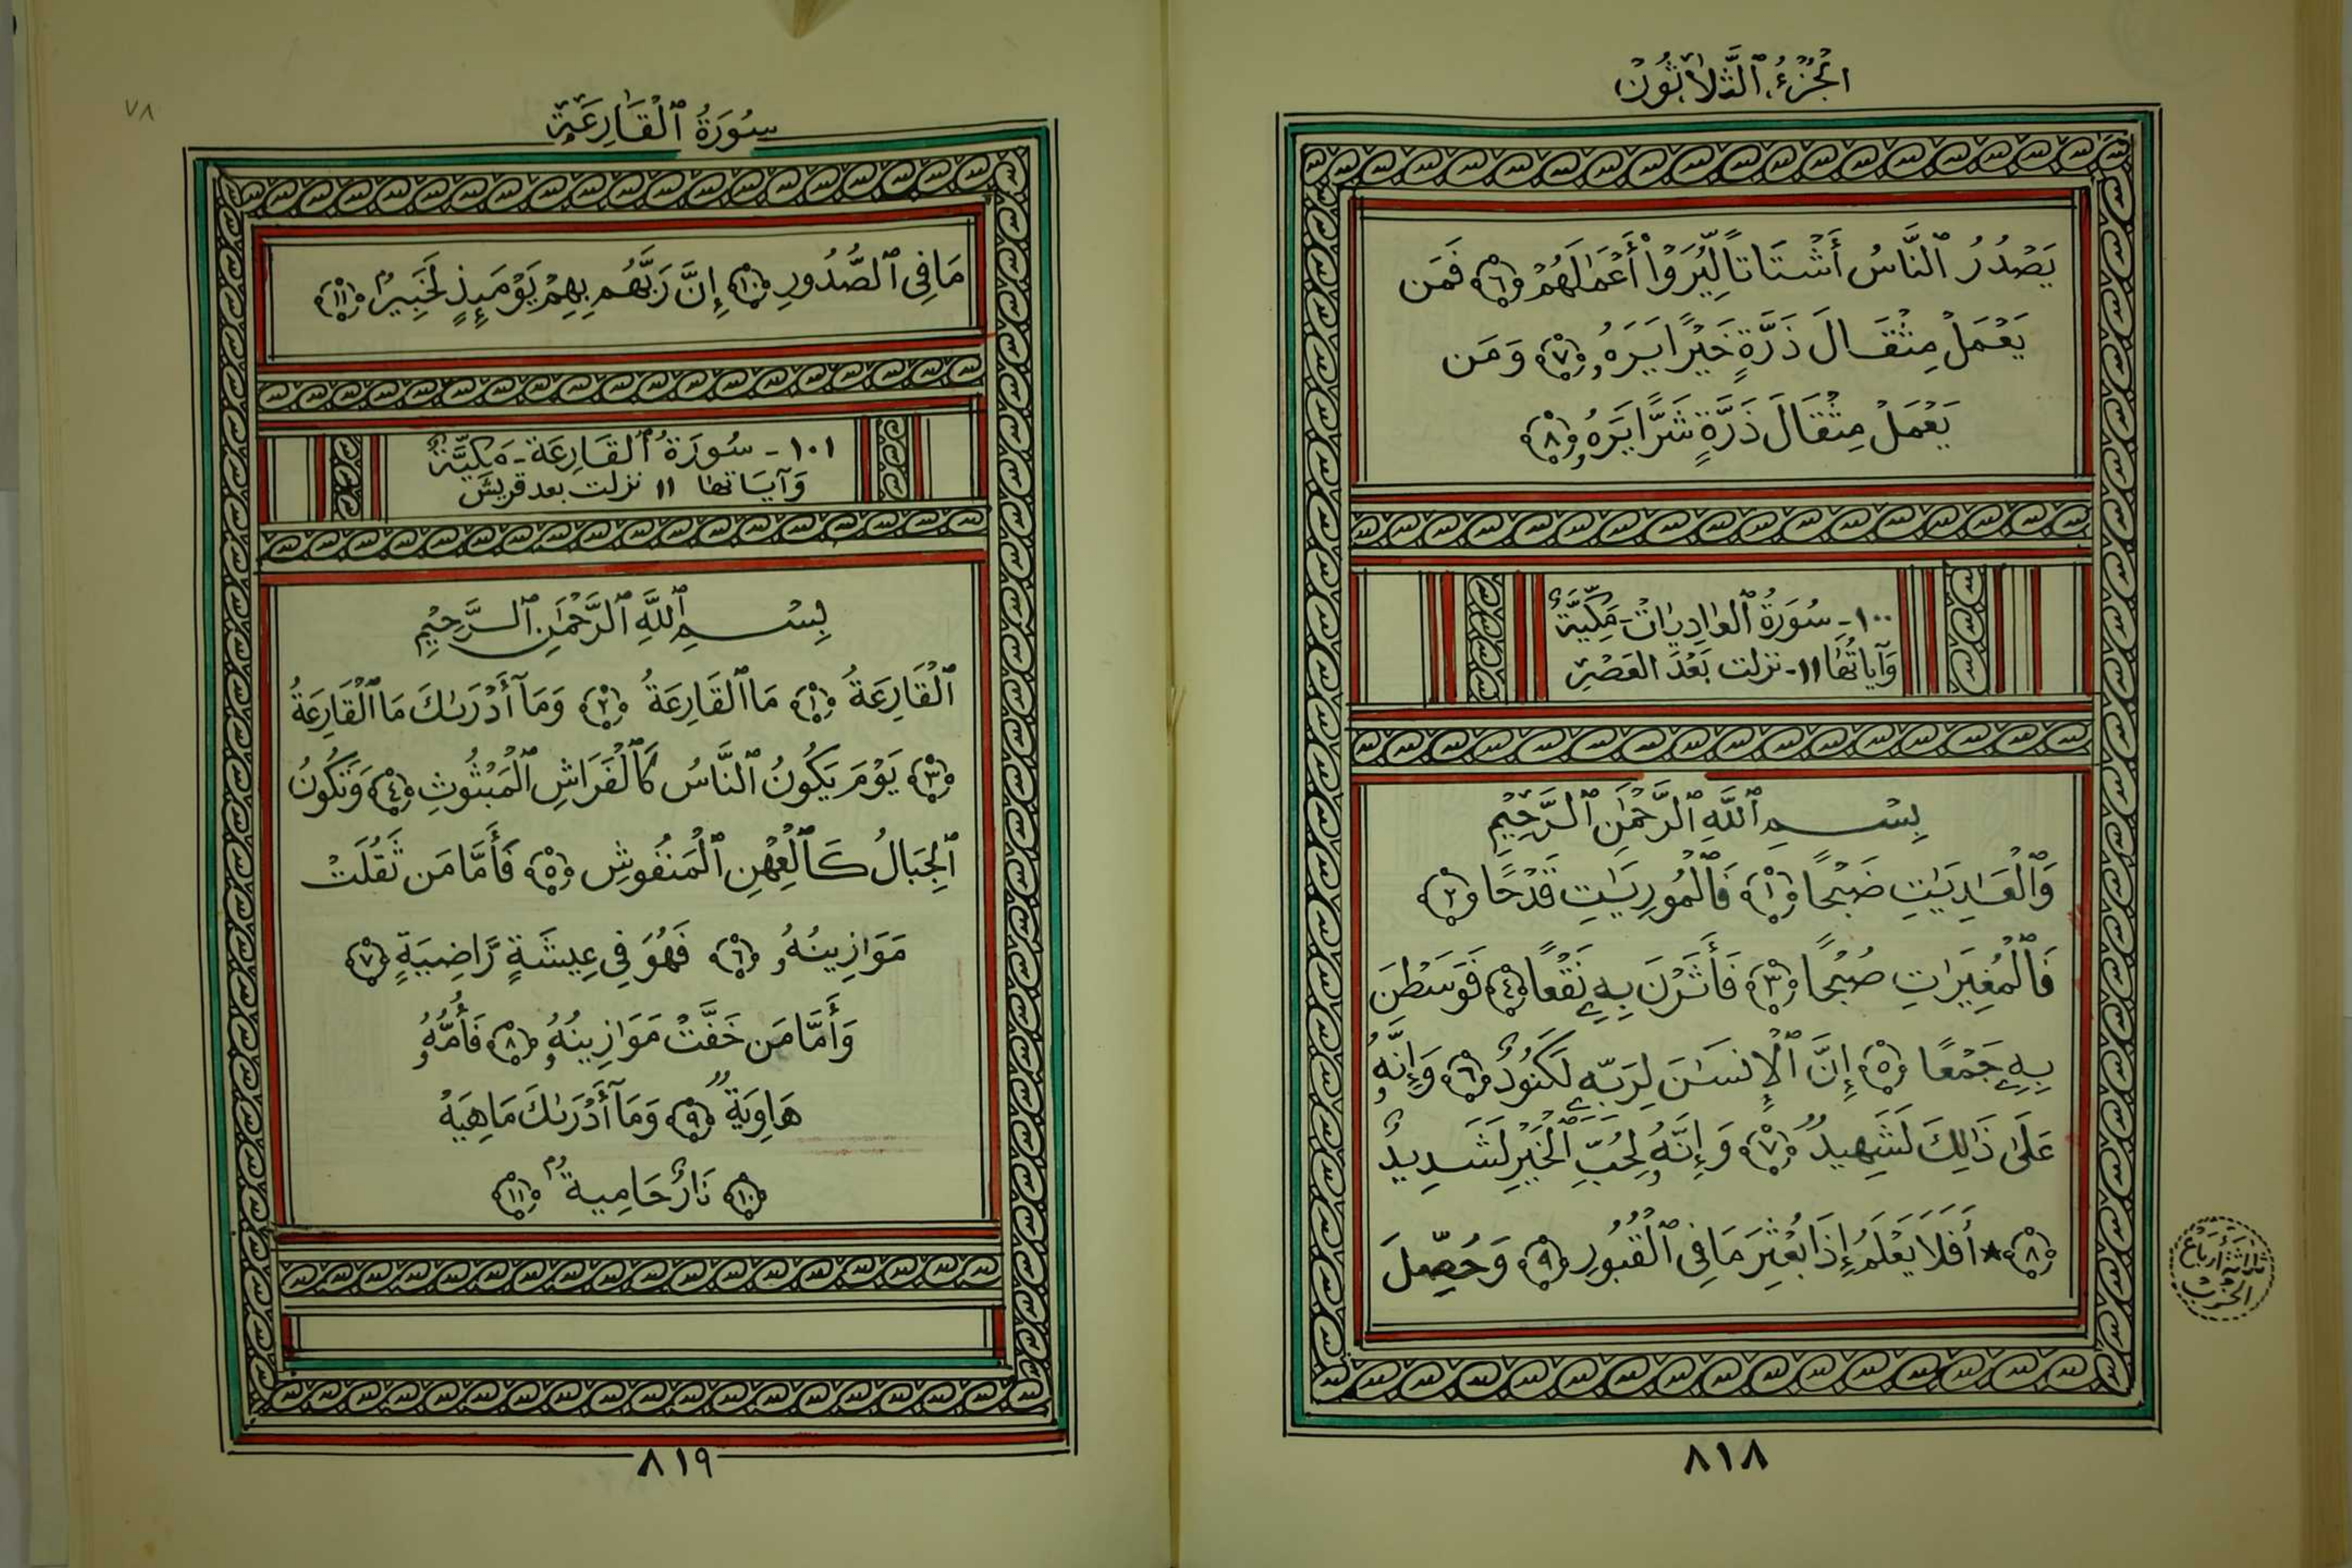 الْجُزْءُ ٱلثَّلَاثُونَ
يَصْدُرُ ٱلنَّاسُ أَشْتَاتًا لِّيُرَوْا۟ أَعْمَٰلَهُمْ ٦ فَمَن
يَعْمَلْ مِثْقَالَ ذَرَّةٍ خَيْرًا يَرَهُۥ ٧ وَمَن
يَعْمَلْ مِثْقَالَ ذَرَّةٍ شَرًّا يَرَهُۥ ٨
١٠٠ - سُورَةُ ٱلعَادِيَات - مَكِّيَّةٌ
وَآياتُهَا ١١ - نزلت بَعْدَ العَصْرِ
بِسْمِ ٱللَّهِ ٱلرَّحْمَٰنِ ٱلرَّحِيمِ
وَٱلْعَٰدِيَٰتِ ضَبْحًا ١ فَٱلْمُورِيَٰتِ قَدْحًا ٢
فَٱلْمُغِيرَٰتِ صُبْحًا ٣ فَأَثَرْنَ بِهِۦ نَقْعًا ٤ فَوَسَطْنَ
بِهِۦ جَمْعًا ٥ إِنَّ ٱلْإِنسَٰنَ لِرَبِّهِۦ لَكَنُودٌ ٦ وَإِنَّهُۥ
عَلَىٰ ذَٰلِكَ لَشَهِيدٌ ٧ وَإِنَّهُۥ لِحُبِّ ٱلْخَيْرِ لَشَدِيدٌ
٨ ★ أَفَلَا يَعْلَمُ إِذَا بُعْثِرَ مَا فِى ٱلْقُبُورِ ٩ وَحُصِّلَ
ثلاثة أرباع
الحزب
٨١٨
٧٨
سُورَةُ ٱلْقَارِعَةِ
مَا فِى ٱلصُّدُورِ ١٠ إِنَّ رَبَّهُم بِهِمْ يَوْمَئِذٍ لَّخَبِيرٌۢ ١١
١٠١ - سُورَةُ ٱلقَارِعَة - مَكِّيَّةٌ
وَآيَاتها ١١ نزلت بعد قريش
بِسْمِ ٱللَّهِ ٱلرَّحْمَٰنِ ٱلرَّحِيمِ
ٱلْقَارِعَةُ ١ مَا ٱلْقَارِعَةُ ٢ وَمَآ أَدْرَىٰكَ مَا ٱلْقَارِعَةُ
٣ يَوْمَ يَكُونُ ٱلنَّاسُ كَٱلْفَرَاشِ ٱلْمَبْثُوثِ ٤ وَتَكُونُ
ٱلْجِبَالُ كَٱلْعِهْنِ ٱلْمَنفُوشِ ٥ فَأَمَّا مَن ثَقُلَتْ
مَوَازِينُهُۥ ٦ فَهُوَ فِى عِيشَةٍ رَّاضِيَةٍ ٧
وَأَمَّا مَن خَفَّتْ مَوَازِينُهُۥ ٨ فَأُمُّهُۥ
هَاوِيَةٌ ٩ وَمَآ أَدْرَىٰكَ مَاهِيَهْ
١٠ نَارٌ حَامِيَةٌۢ ١١
٨١٩